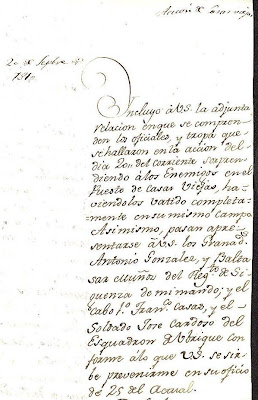 Accion de Casas viejas
20 de Septbre de
181
Incluyo à V.S. la adjunta
relacion en que se compren-
den los oficiales, y tropa que
se hallaron en la accion del
dia 20 del corriente sorpren-
diendo à los Enemigos en el
Puesto de Casas Viejas, ha-
viendolos vatido completa-
mente en su mismo Campo
Asimismo, pasan apre-
sentarse àV.S. los Granad.s
Antonio Gonzalez, y Balta-
sar Muiños del Reg.to de Si-
guenza de mi mando; y el
Cabo 1.o Fran.co Casas, y el
Soldado Jose Cardoso del
Esquadron de Ubrique con
forme álo que V.S. se sir-
be prevenirme en su oficio
de 25 del Actual.